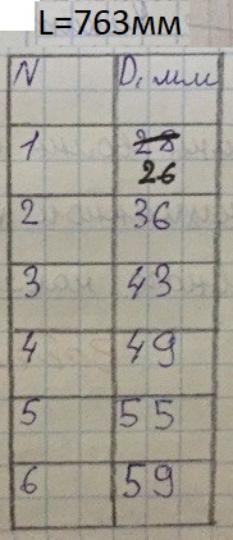 L=763мм
N D, мм
1 28
26
2 36
3 43
4 49
5 55
6 59